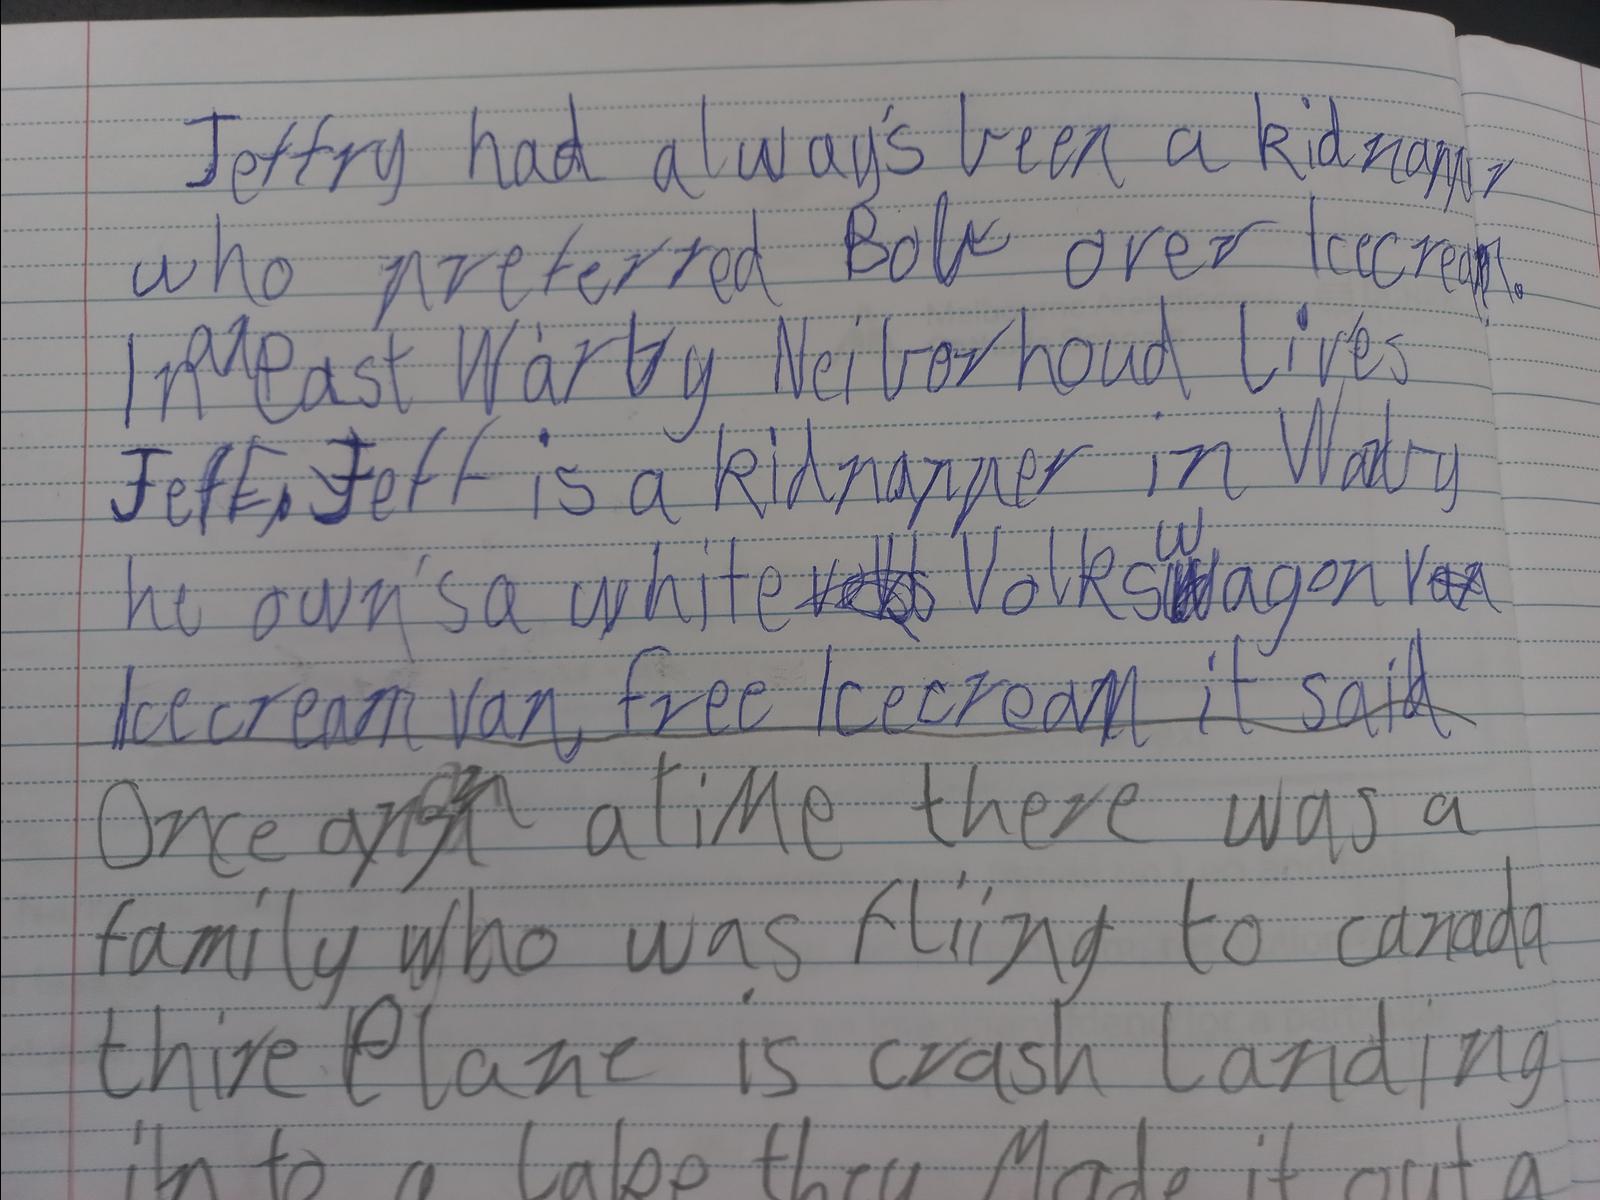 Jeffry had always been a kidnappr
who preferred over Icecream.
In an east Warby Neiborhoud Lives
Jeff, Jeff is a kidnapper in Warby
he own's a white Volkswagon
Icecream van, free Icecream it said
Once on a tiMe there was a
family who was fliing to canada
thire Plane is crash Landing
in to a lake they Made it out a